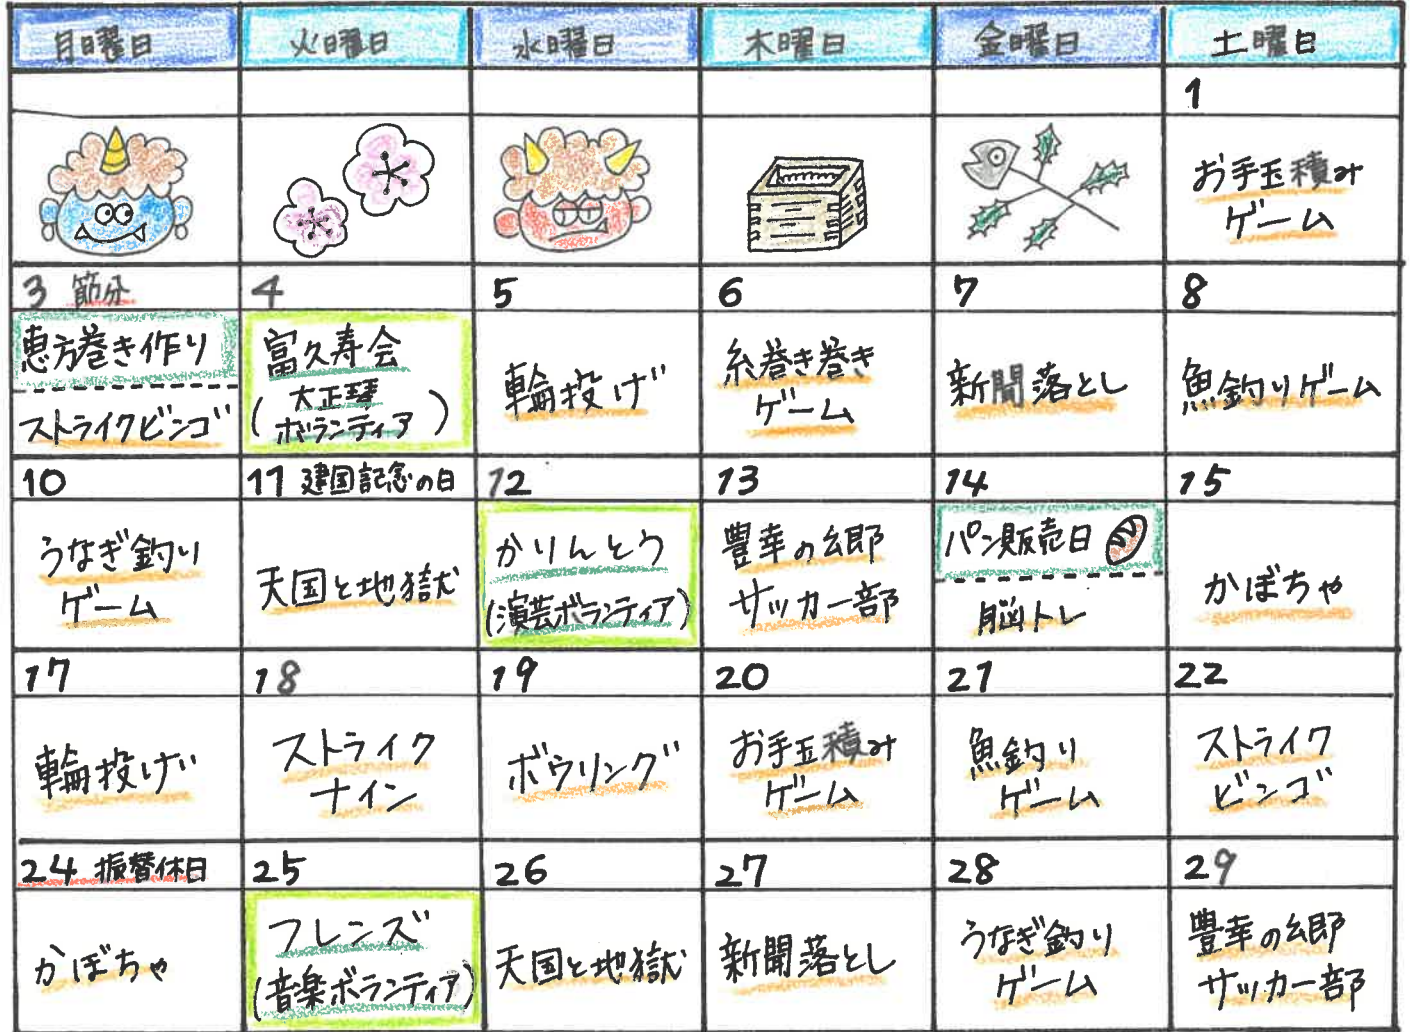 月曜日 火曜日 水曜日 木曜日 金曜日 土曜日
1
お手玉積み
ゲーム
3 節分 4 5 6 7 8
恵方巻き作り
ストライクビンゴ
富久寿会
(大正琴
ボランティア)
輪投げ
糸巻き巻き
ゲーム
新聞落とし
魚釣りゲーム
10 11 建国記念の日 12 13 14 15
うなぎ釣り
ゲーム
天国と地獄
かりんとう
(演芸ボランティア)
豊幸の郷
サッカー部
パン販売日
脳トレ
かぼちゃ
17 18 19 20 21 22
輪投げ
ストライク
ナイン
ボウリング
お手玉積み
ゲーム
魚釣り
ゲーム
ストライク
ビンゴ
24 振替休日 25 26 27 28 29
かぼちゃ
フレンズ
(音楽ボランティア)
天国と地獄
新聞落とし
うなぎ釣り
ゲーム
豊幸の郷
サッカー部